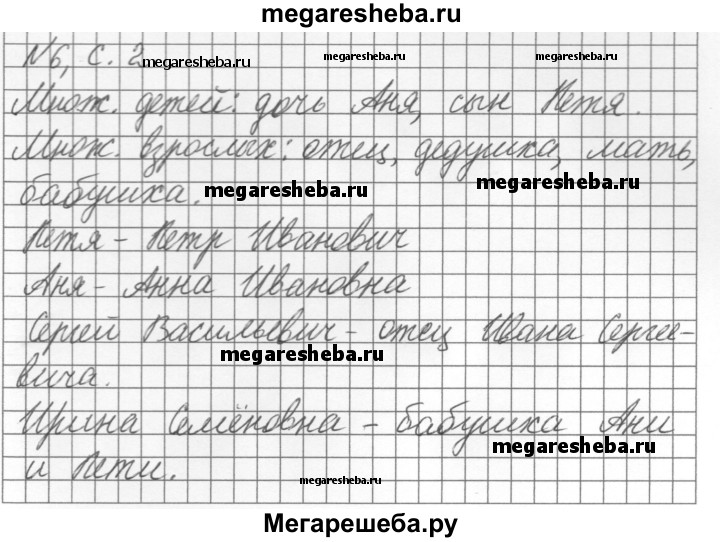 megaresheba.ru
№6, с. 2
megaresheba.ru
megaresheba.ru
megaresheba.ru
Множ. детей: дочь Аня, сын Петя.
Множ. взрослых: отец, дедушка, мать,
бабушка.
megaresheba.ru
megaresheba.ru
Петя - Петр Иванович
Аня - Анна Ивановна
Сергей Васильевич - отец Ивана Сергее-
megaresheba.ru
вича.
Ирина Семёновна - бабушка Ани
megaresheba.ru
и Пети.
megaresheba.ru
Мегарешеба.ру